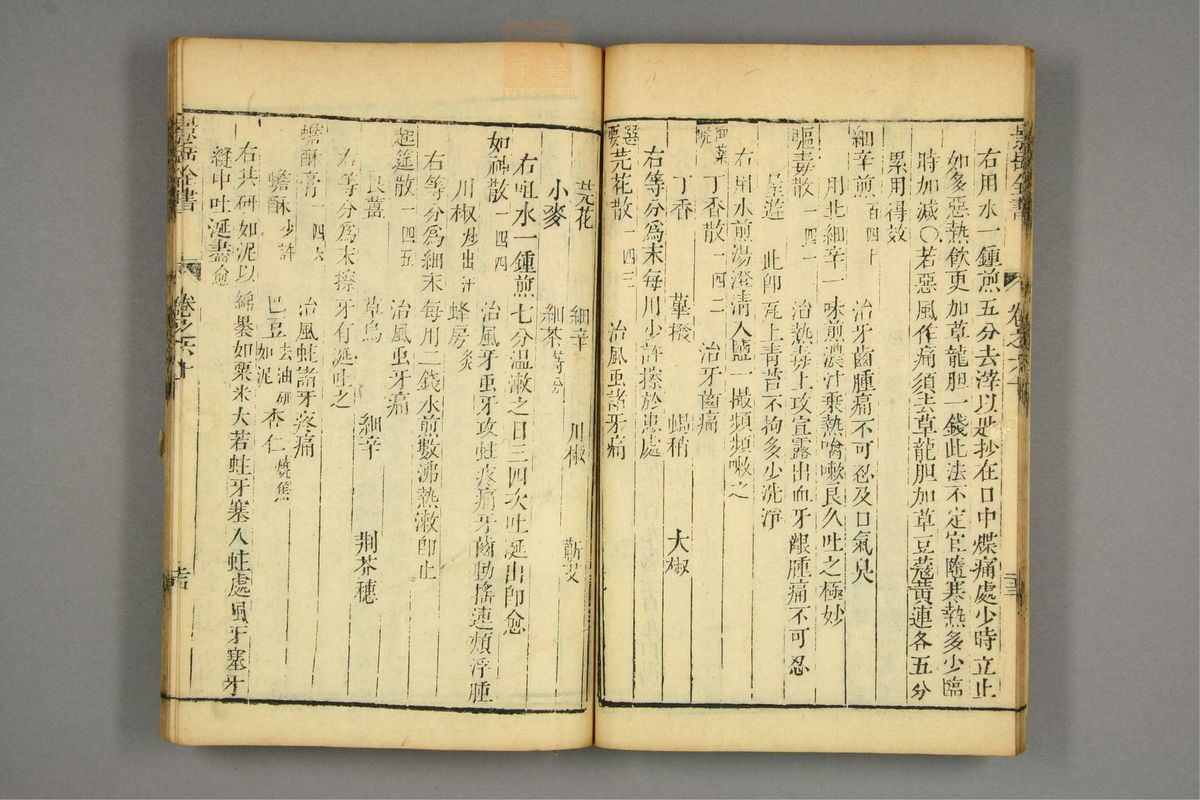 景岳全書 卷之六十
右用水一鍾煎五分去滓以匙抄在口中煠痛處少時立止
如多惡熱飲更加草龍胆一錢此法不定宜隨寒熱多少臨
時加減〇若惡風作痛須去草龍胆加草豆蔻黃連各五分
累用得效
細辛煎 百四十 治牙齒腫痛不可忍及口氣臭
用北細辛一味煎濃汁乘熱噙嗽良久吐之極妙
驅毒散 一四一 治熱毒上攻宣露出血牙齦腫痛不可忍
此即瓦上青苔不拘多少洗淨
右用水煎湯澄清入鹽一撮頻頻嗽之
御藥院丁香散 一四二 治牙齒痛
丁香 蓽撥 蝎梢 大椒
右等分爲末每用少許擦於患處
選要芫花散 一四三 治風虫諸牙痛
芫花 細辛 川椒 蘄艾
小麥 細茶等分
右咀水一鍾煎七分温漱之日三四次吐涎出即愈
如神散 一四四 治風牙虫牙攻蛀疼痛牙齒動搖連頰浮腫
川椒炒出汗 蜂房炙
右等分爲細末每用二錢水煎數沸熱漱即止
起筵散 一四五 治風虫牙痛
良薑 草烏 細辛 荆芥穗
右等分爲末擦牙有涎吐之
蟾酥膏 一四六 治風蛀諸牙疼痛
蟾酥少許 巴豆去油研如泥 杏仁燒焦
右共研如泥以綿裹如粟米大若蛀牙塞入蛀處風牙塞牙
縫中吐涎盡愈
景岳全書 卷之六十